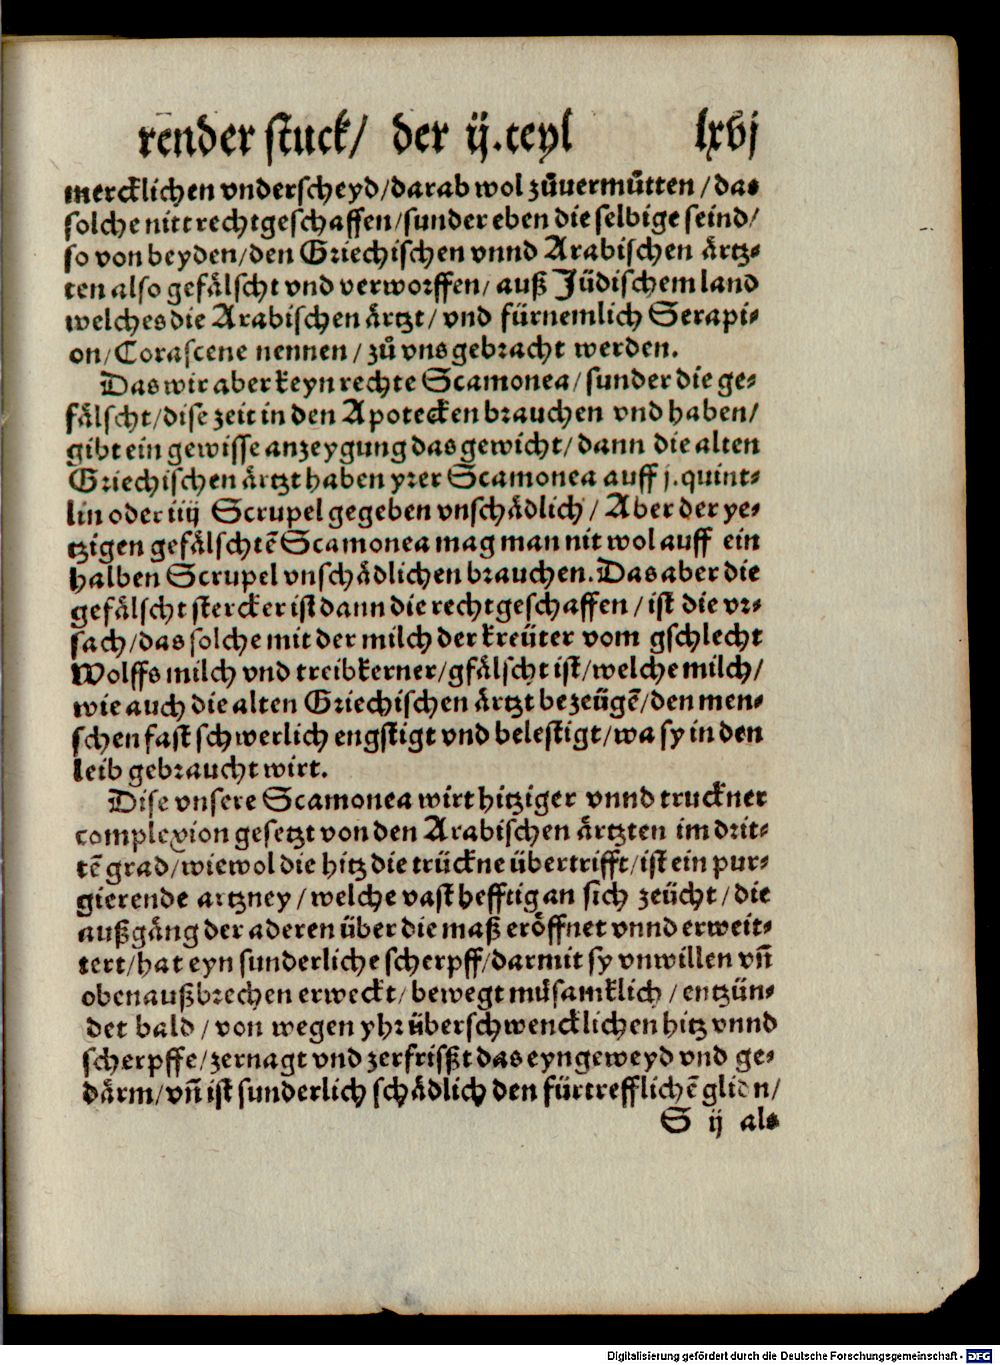 render stuck/ der ij.teyl lxvj
mercklichen vnderscheyd/darab wol zůuermůtten/das
solche nitt rechtgeschaffen/sunder eben die selbige seind/
so von beyden/den Griechischen vnnd Arabischen ärtz-
ten also gefälscht vnd verworffen/ auß Jüdischem land
welches die Arabischen ärtzt/ vnd fürnemlich Serapi-
on/Corascene nennen/ zů vns gebracht werden.
Das wir aber keyn rechte Scamonea/sunder die ge-
fälscht/dise zeit in den Apotecken brauchen vnd haben/
gibt ein gewisse anzeygung das gewicht/ dann die alten
Griechischen ärtzt haben yrer Scamonea auff j.quint-
lin oder iiij Scrupel gegeben vnschädlich/ Aber der ye-
tzigen gefälschtẽ Scamonea mag man nit wol auff ein
halben Scrupel vnschädlichen brauchen.Das aber die
gefälscht stercker ist dann die rechtgeschaffen/ist die vr-
sach/das solche mit der milch der kreüter vom gschlecht
Wolffs milch vnd treibkerner/gfälscht ist/welche milch/
wie auch die alten Griechischen ärtzt bezeügẽ/den men-
schen fast schwerlich engstigt vnd belestigt/wa sy in den
leib gebraucht wirt.
Dise vnsere Scamonea wirt hitziger vnnd truckner
complexion gesetzt von den Arabischen ärtzten im drit-
tẽ grad/wiewol die hitz die trückne übertrifft/ist ein pur-
gierende artzney/welche vast hefftig an sich zeücht/die
außgäng der aderen über die maß eröffnet vnnd erweit-
tert/hat eyn sunderliche scherpff/darmit sy vnwillen vñ
obenaußbrechen erweckt/bewegt müsamklich/entzün-
det bald/von wegen yhr überschwencklichen hitz vnnd
scherpffe/zernagt vnd zerfrißt das eyngeweyd vnd ge-
därm/vñ ist sunderlich schädlich den fürtrefflichẽ gliden/
S ij als
Digitalisierung gefördert durch die Deutsche Forschungsgemeinschaft - DFG